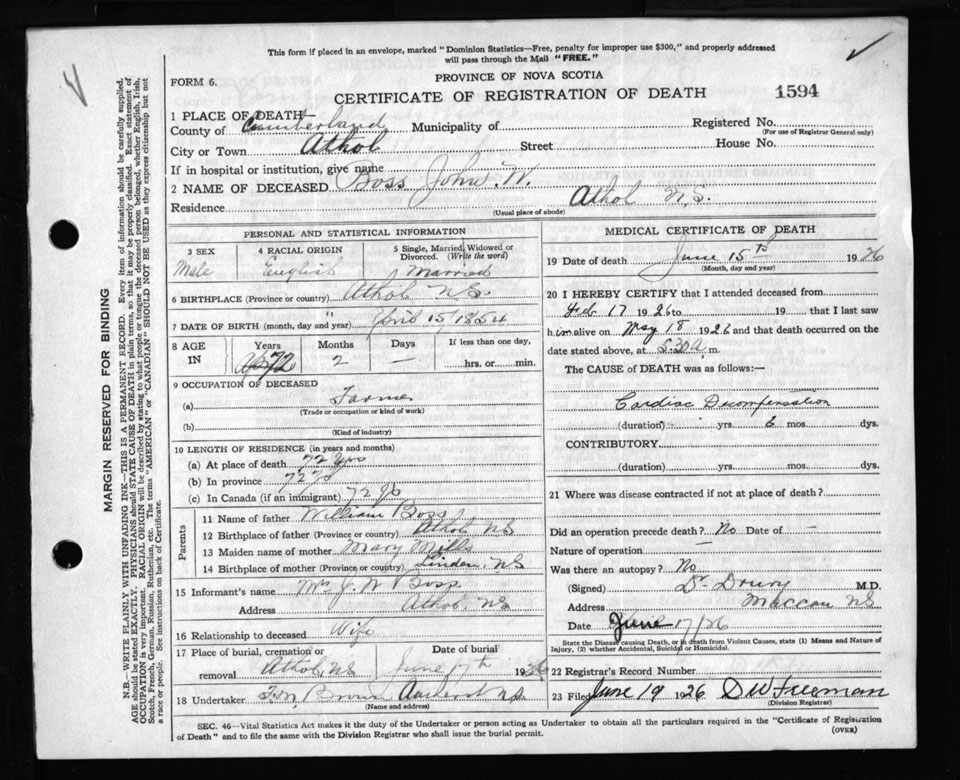 This form if placed in an envelope, marked "Dominion Statistics—Free, penalty for improper use $300," and properly addressed
will pass through the Mail "FREE."
FORM 6.
PROVINCE OF NOVA SCOTIA
CERTIFICATE OF REGISTRATION OF DEATH
1594
1 PLACE OF DEATH
County of Cumberland Municipality of
Registered No.
(For use of Registrar General only)
City or Town Athol Street House No.
If in hospital or institution, give name
2 NAME OF DECEASED Boss John W.
Residence Athol N.S.
(Usual place of abode)
PERSONAL AND STATISTICAL INFORMATION
3 SEX
Male
4 RACIAL ORIGIN
English
5 Single, Married, Widowed or
Divorced. (Write the word)
Married
6 BIRTHPLACE (Province or country) Athol N.S.
7 DATE OF BIRTH (month, day and year) April 15/1854
8 AGE IN
Years 72
Months 2
Days —
If less than one day,
hrs. or min.
9 OCCUPATION OF DECEASED
(a) Farmer
(Trade or occupation or kind of work)
(b)
(Kind of industry)
10 LENGTH OF RESIDENCE (in years and months)
(a) At place of death 72 yrs
(b) In province 72
(c) In Canada (if an immigrant) 72
Parents
11 Name of father William Boss
12 Birthplace of father (Province or country) Athol NS
13 Maiden name of mother Mary Mills
14 Birthplace of mother (Province or country) Linden, NS
15 Informant's name Mrs J. W Boss
Address Athol, NS
16 Relationship to deceased Wife
17 Place of burial, cremation or removal Athol, NS
Date of burial
June 17th 1926
18 Undertaker Brown Amherst NS
(Name and address)
MEDICAL CERTIFICATE OF DEATH
19 Date of death June 15th 1926
(Month, day and year)
20 I HEREBY CERTIFY that I attended deceased from
Feb 17 1926 to 19 that I last saw
him alive on May 18 1926 and that death occurred on the
date stated above, at 5.30 a. m.
The CAUSE of DEATH was as follows:—
Cardiac Decompensation
(duration) yrs. 6 mos. dys.
CONTRIBUTORY
(duration) yrs. mos. dys.
21 Where was disease contracted if not at place of death?
Did an operation precede death? No Date of —
Nature of operation —
Was there an autopsy? No
(Signed) Dr Drury M.D.
Address Maccan NS
Date June 17/26
State the Disease causing Death, or in death from Violent Causes, state (1) Means and Nature of
Injury, (2) whether Accidental, Suicidal or Homicidal.
22 Registered Record Number
23 Filed June 19 1926 DW Freeman
(Division Registrar)
SEC. 46—Vital Statistics Act makes it the duty of the Undertaker or person acting as Undertaker to obtain all the particulars required in the "Certificate of Registration
of Death" and to file the same with the Division Registrar who shall issue the burial permit.
(OVER)
MARGIN RESERVED FOR BINDING
N.B.—WRITE PLAINLY WITH UNFADING INK—THIS IS A PERMANENT RECORD. Every item of information should be carefully supplied.
AGE should be stated EXACTLY. PHYSICIANS should STATE CAUSE OF DEATH in plain terms, so that it may be properly classified. Exact statement of
OCCUPATION is very important. RACIAL ORIGIN will be described by stating to what people or tongue the deceased person belonged, whether English, Irish,
Scotch, French, German, Russian, Ruthenian, etc. The terms "AMERICAN" or "CANADIAN" SHOULD NOT BE USED as they express citizenship but not
a race or people. See instructions on back of Certificate.